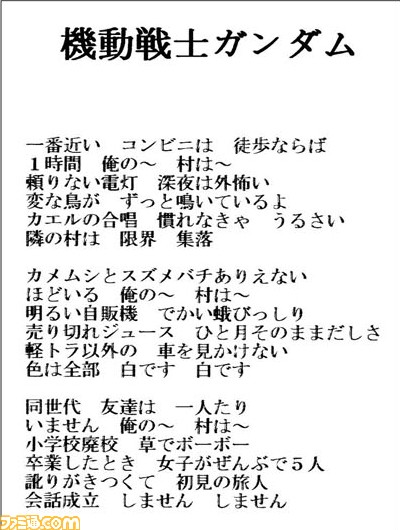 機動戦士ガンダム
一番近い　コンビニは　徒歩ならば
１時間　俺の～　村は～
頼りない電灯　深夜は外怖い
変な鳥が　ずっと鳴いているよ
カエルの合唱　慣れなきゃ　うるさい
隣の村は　限界　集落
カメムシとスズメバチありえない
ほどいる　俺の～　村は～
明るい自販機　でかい蛾びっしり
売り切れジュース　ひと月そのままだしさ
軽トラ以外の　車を見かけない
色は全部　白です　白です
同世代　友達は　一人たり
いません　俺の～　村は～
小学校廃校　草でボーボー
卒業したとき　女子がぜんぶで５人
訛りがきつくて　初見の旅人
会話成立　しません　しません
ファミ通.com